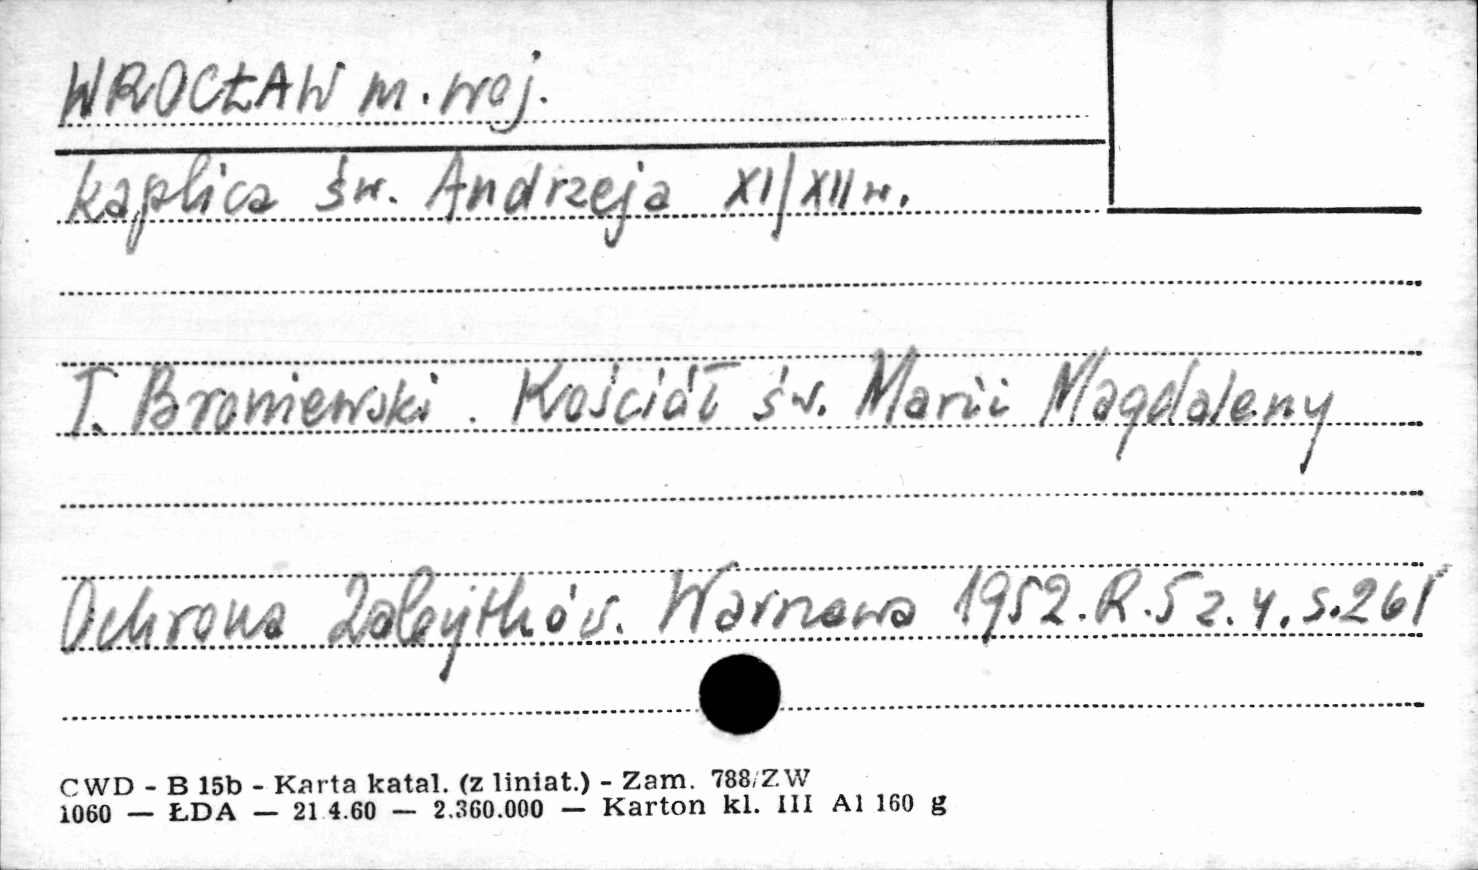 WROCŁAW m. woj.
kaplica św. Andrzeja XI/XII w.
T. Broniewski. Kościół św. Marii Magdaleny
Ochrona Zabytków. Warszawa 1952. R. 5 z. 4. s. 261
CWD - B 15b - Karta katal. (z liniat.) - Zam. 788/ZW
1060 — ŁDA — 21.4.60 — 2.360.000 — Karton kl. III A1 160 g